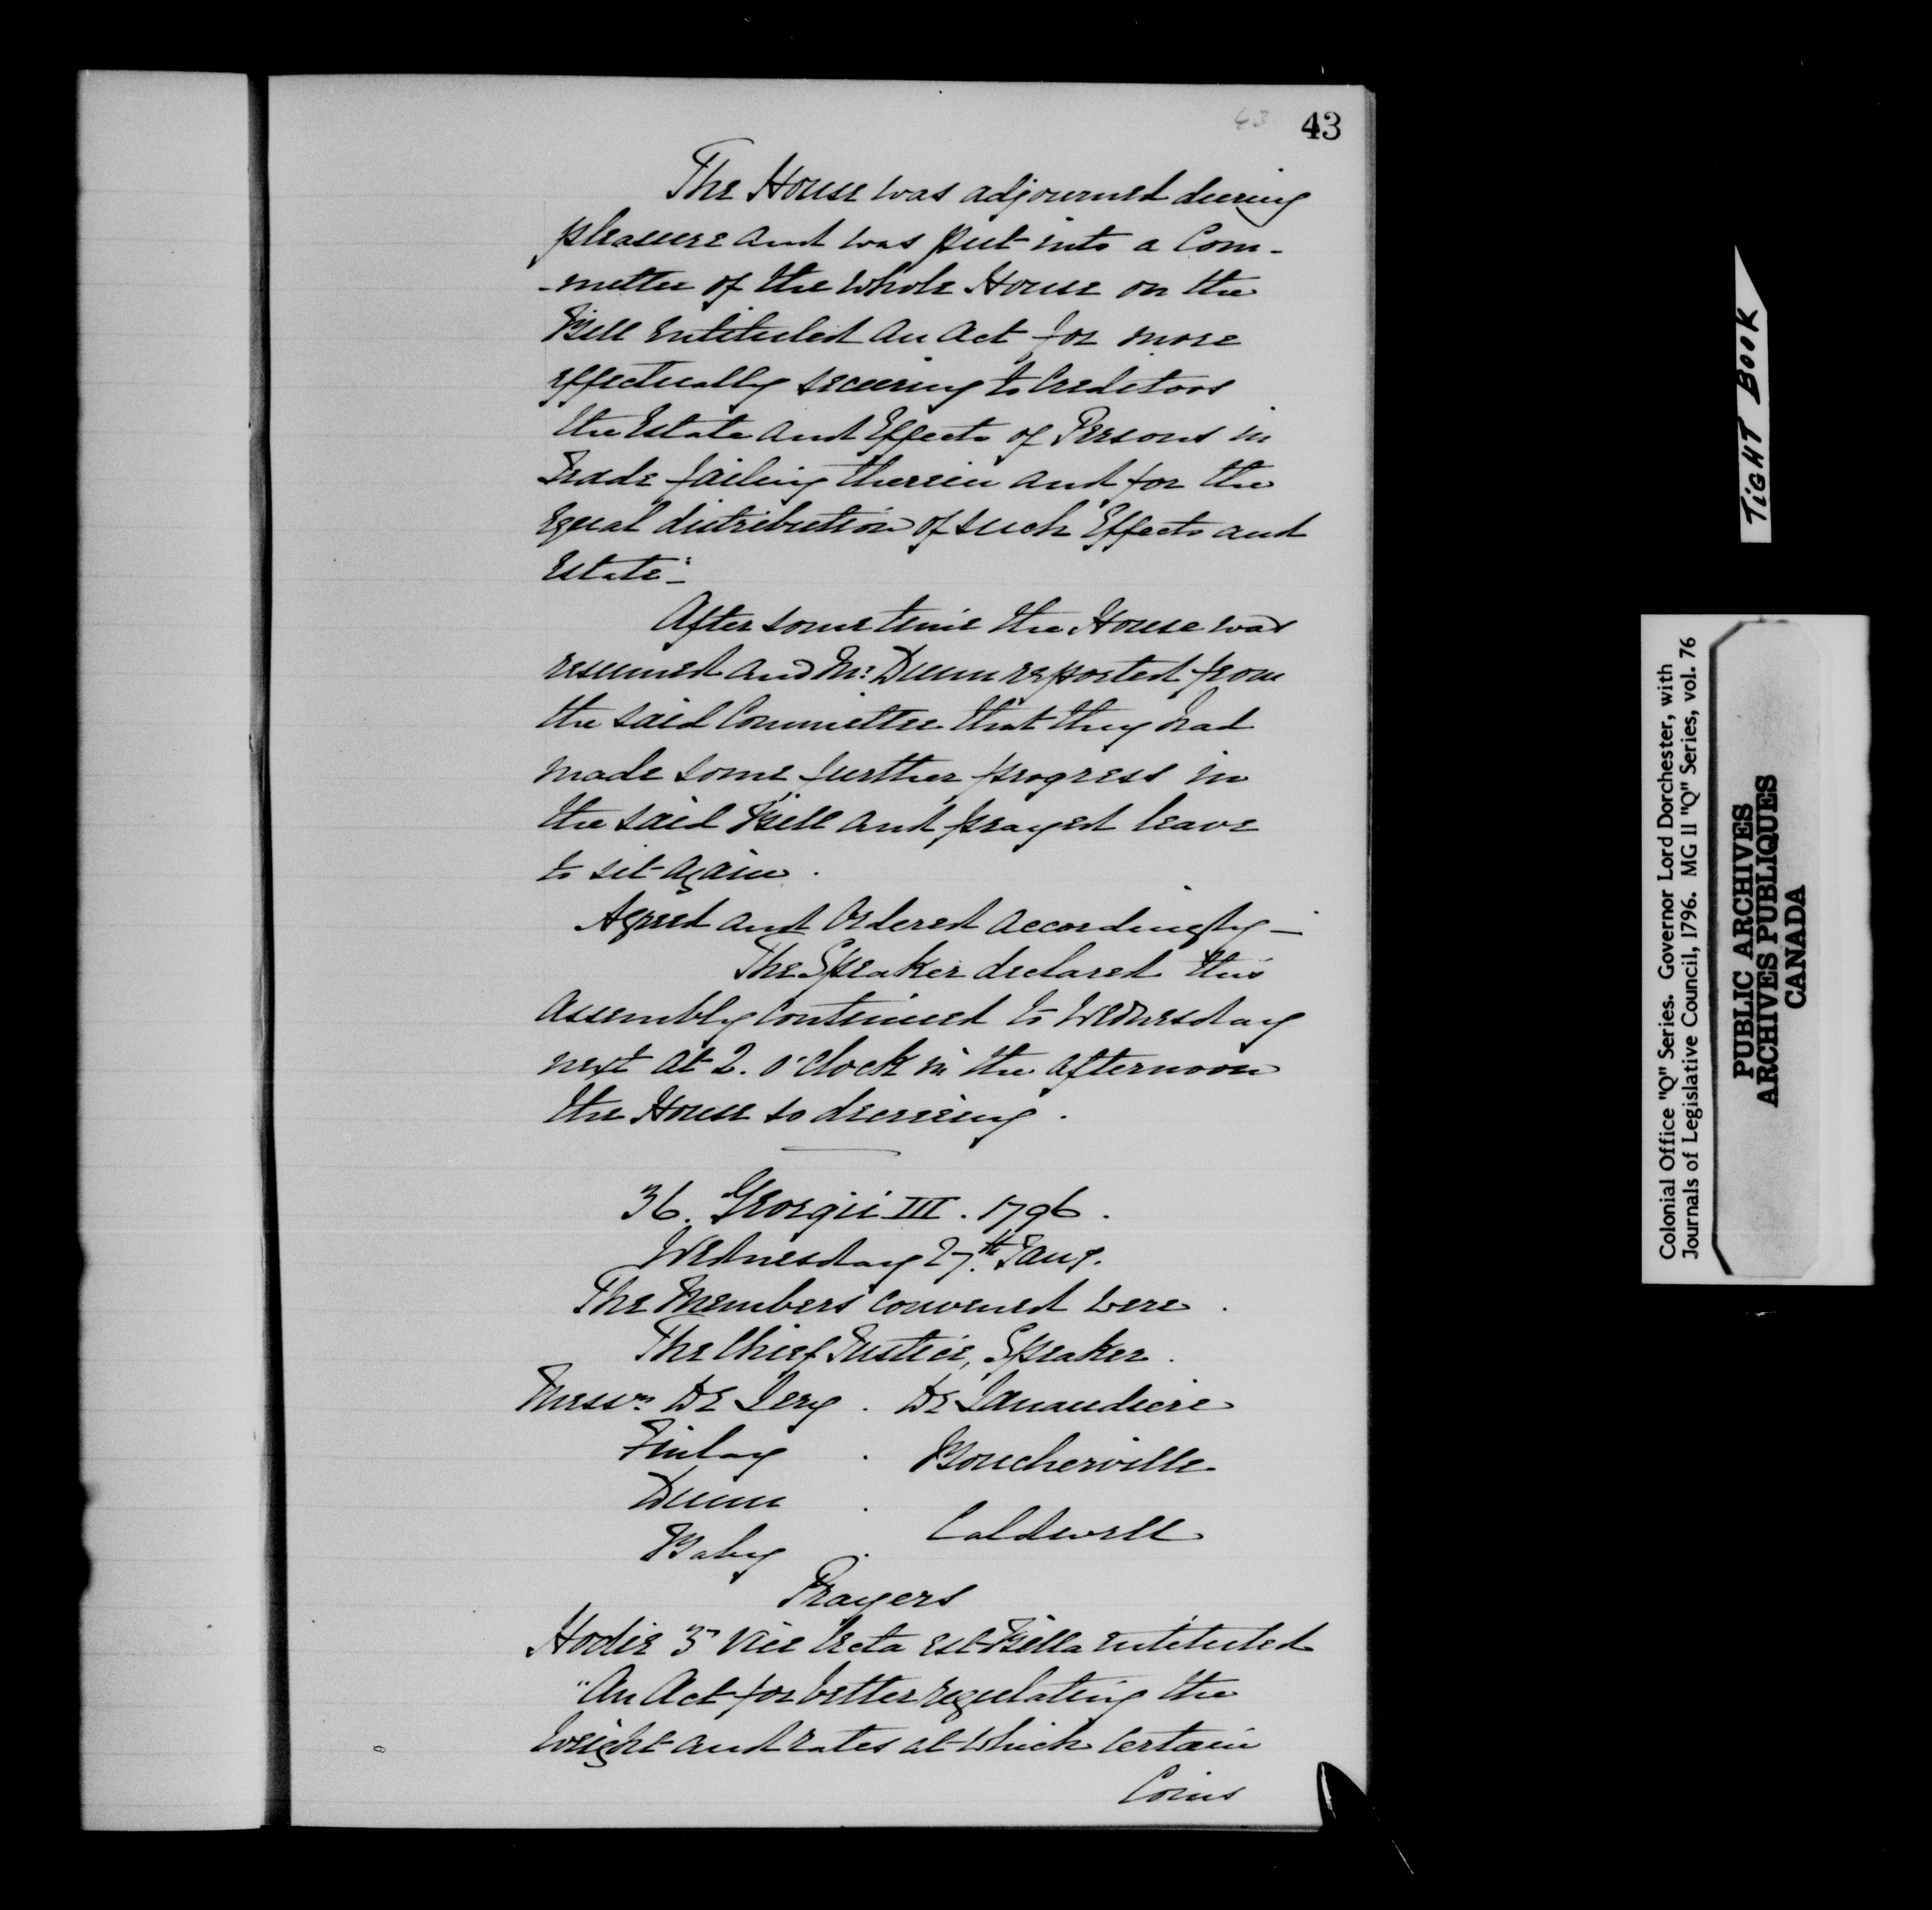 43 43
The House was adjourned during
pleasure and was put into a Com-
-mittee of the whole House on the
Bill entituled An Act for more
effectually securing to Creditors
the Estate and Effects of Persons in
Trade failing therein and for the
Equal distribution of such Effects and
Estate"-
After some time the House was
resumed and Mr. Dunn reported from
the said Committee that they had
made some further progress in
the said Bill and prayed leave
to sit again.
Agreed and Ordered accordingly_
The Speaker declared this
Assembly continued to Wednesday
next at 2. o'clock in the afternoon
the House so decreeing.
36. Georgii III. 1796.
Wednesday 27th Jany.
The Members convened were.
The Chief Justice, Speaker.
Messrs De Lery . De Lanaudiere
Finlay . Boucherville
Dunn .
Caldwell
Baby .
Prayers
Hodie 3a vice lecta est Billa entituled
"An Act for better regulating the
weight and rates at which certain
Coins
TIGHT BOOK
Colonial Office "Q" Series. Governor Lord Dorchester, with
Journals of Legislative Council, 1796. MG 11 "Q" Series, vol. 76
PUBLIC ARCHIVES
ARCHIVES PUBLIQUES
CANADA